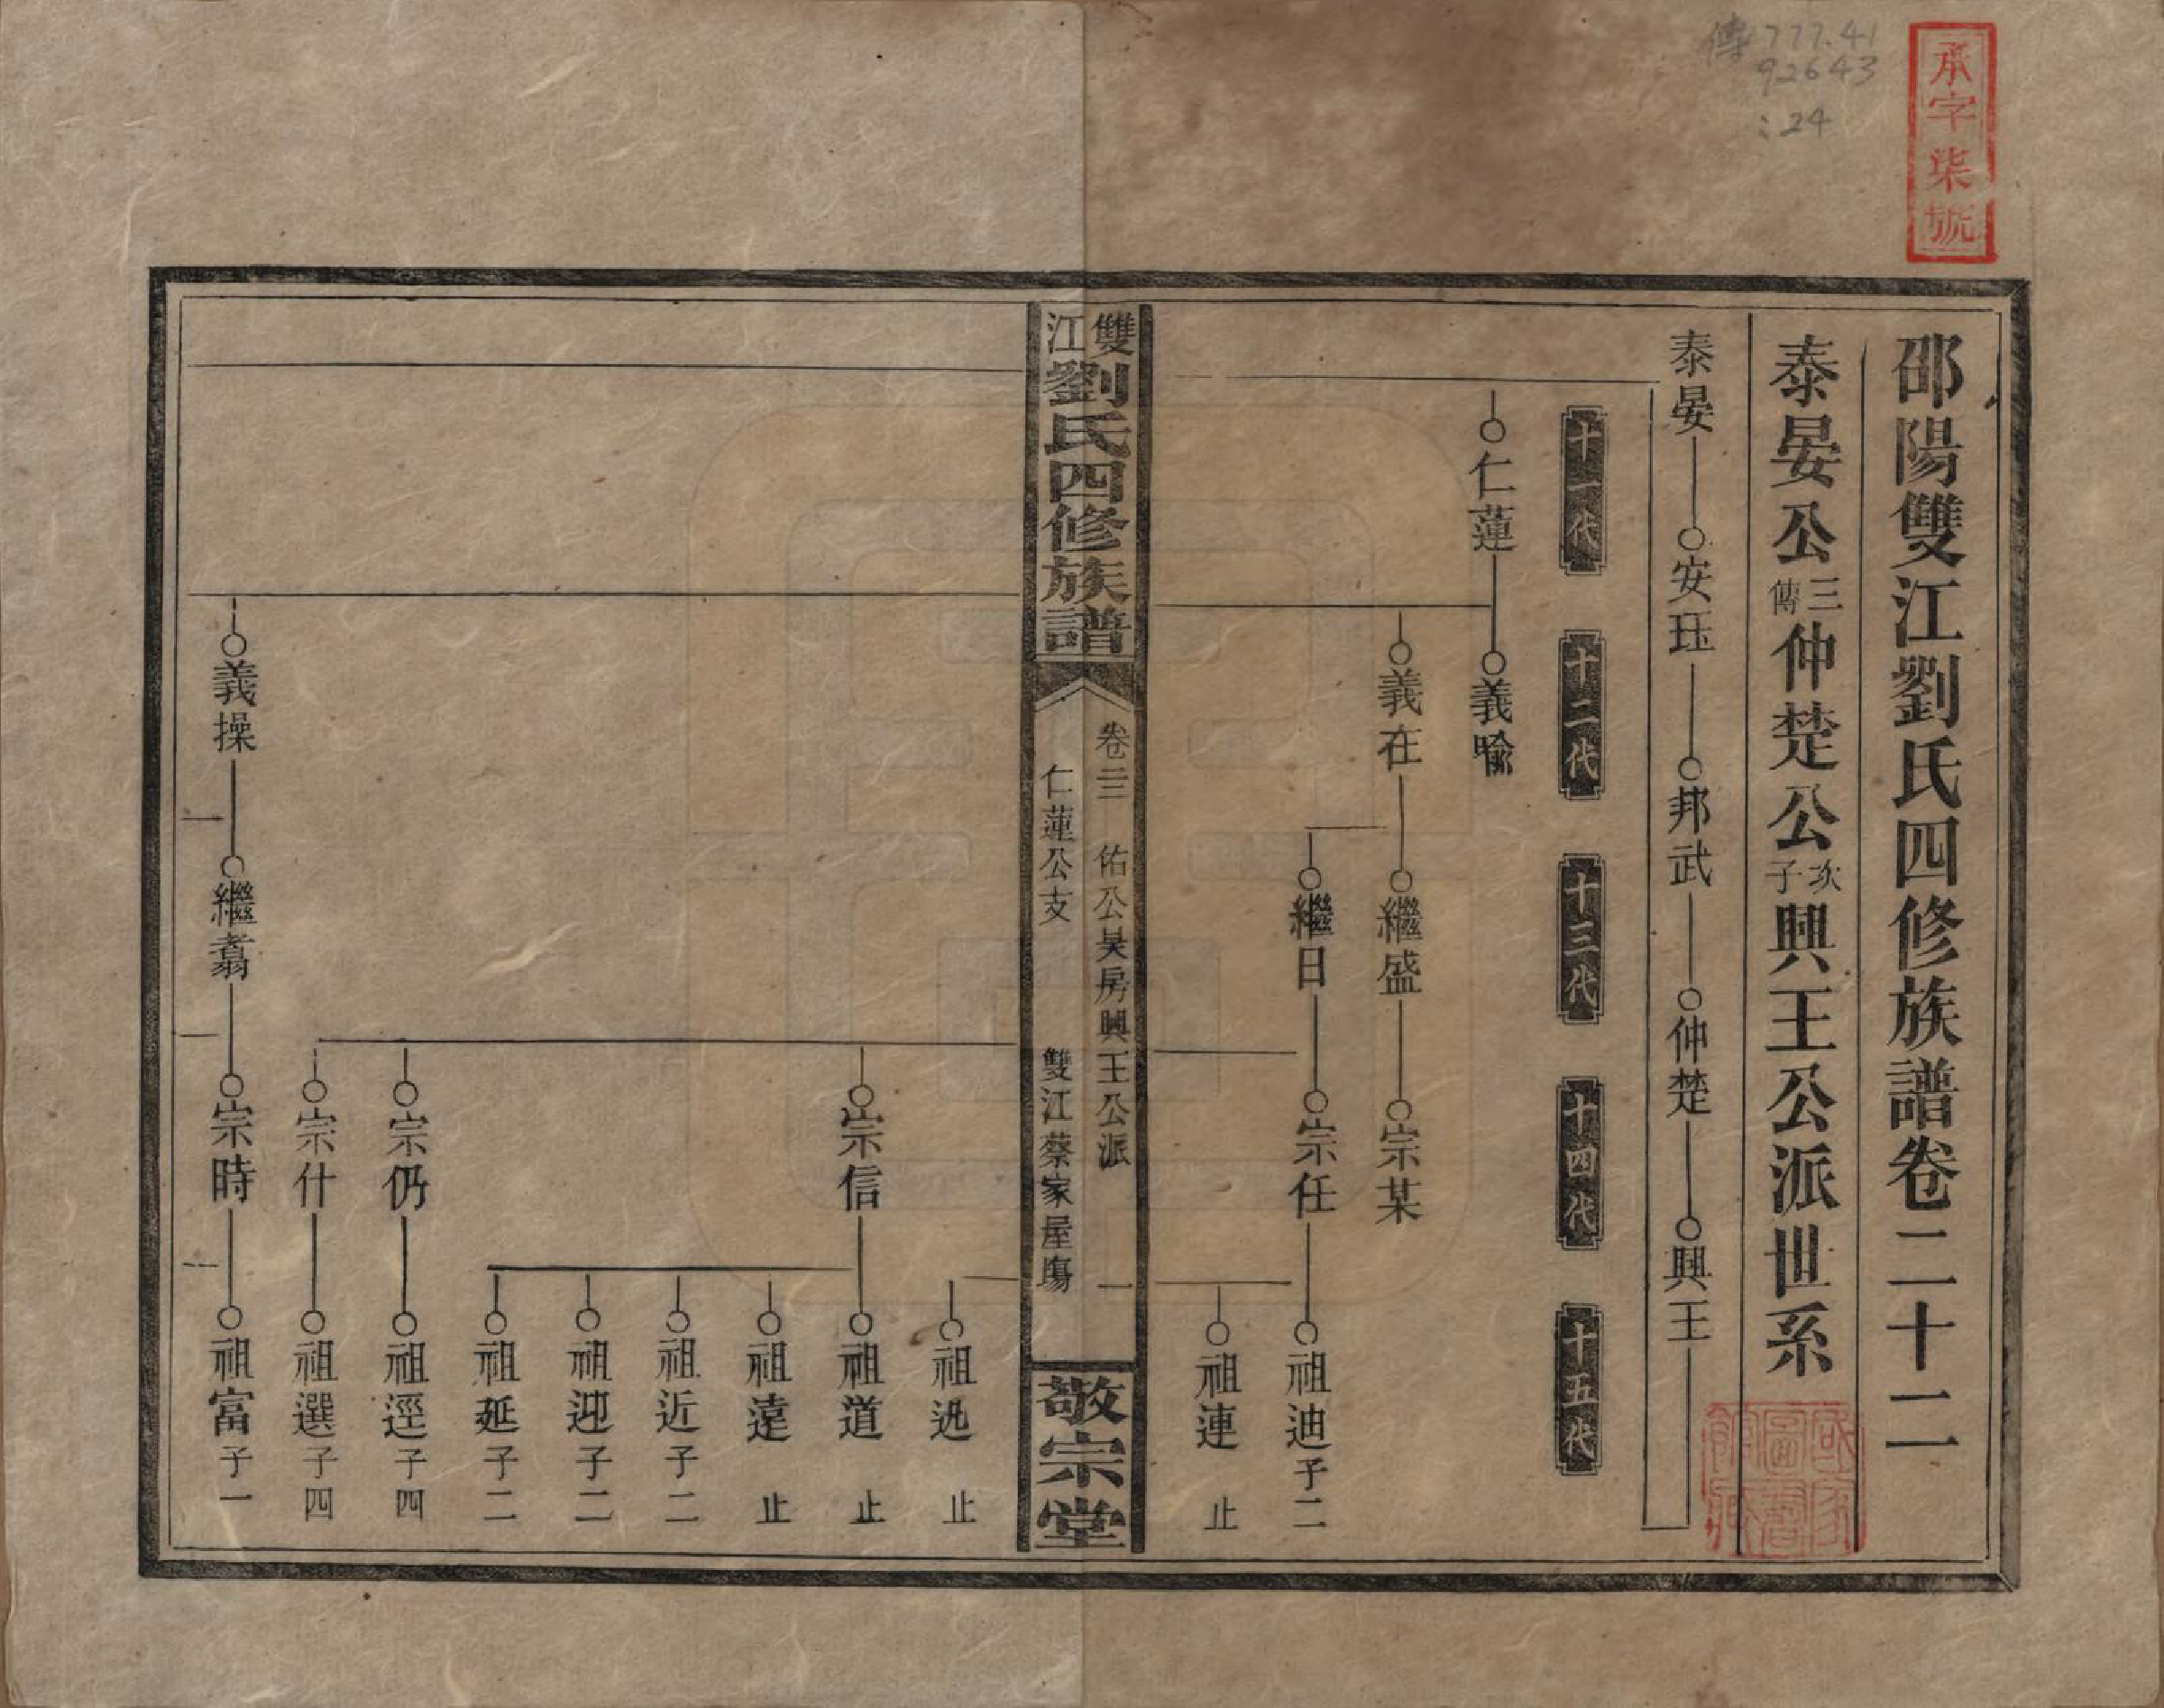 傳 777.41
92643
:24
承字柒號
邵陽雙江劉氏四修族譜卷二十二
泰晏公三傳仲楚公次子興王公派世系
泰晏 安珏 邦武 仲楚 興王
十一代 十二代 十三代 十四代 十五代
仁蓮 義喻
義在 繼盛 宗某
繼日 宗任 祖迪 子二
祖連 止
雙江劉氏四修族譜
卷二二 佑公昊房興王公派 一
仁蓮公支 雙江蔡家屋塲
敬宗堂
祖兆 止
宗信 祖道 止
祖遠 止
祖近 子二
祖迎 子二
祖延 子二
宗仍 祖逕 子四
宗什 祖選 子四
義操 繼翥 宗時 祖富 子一